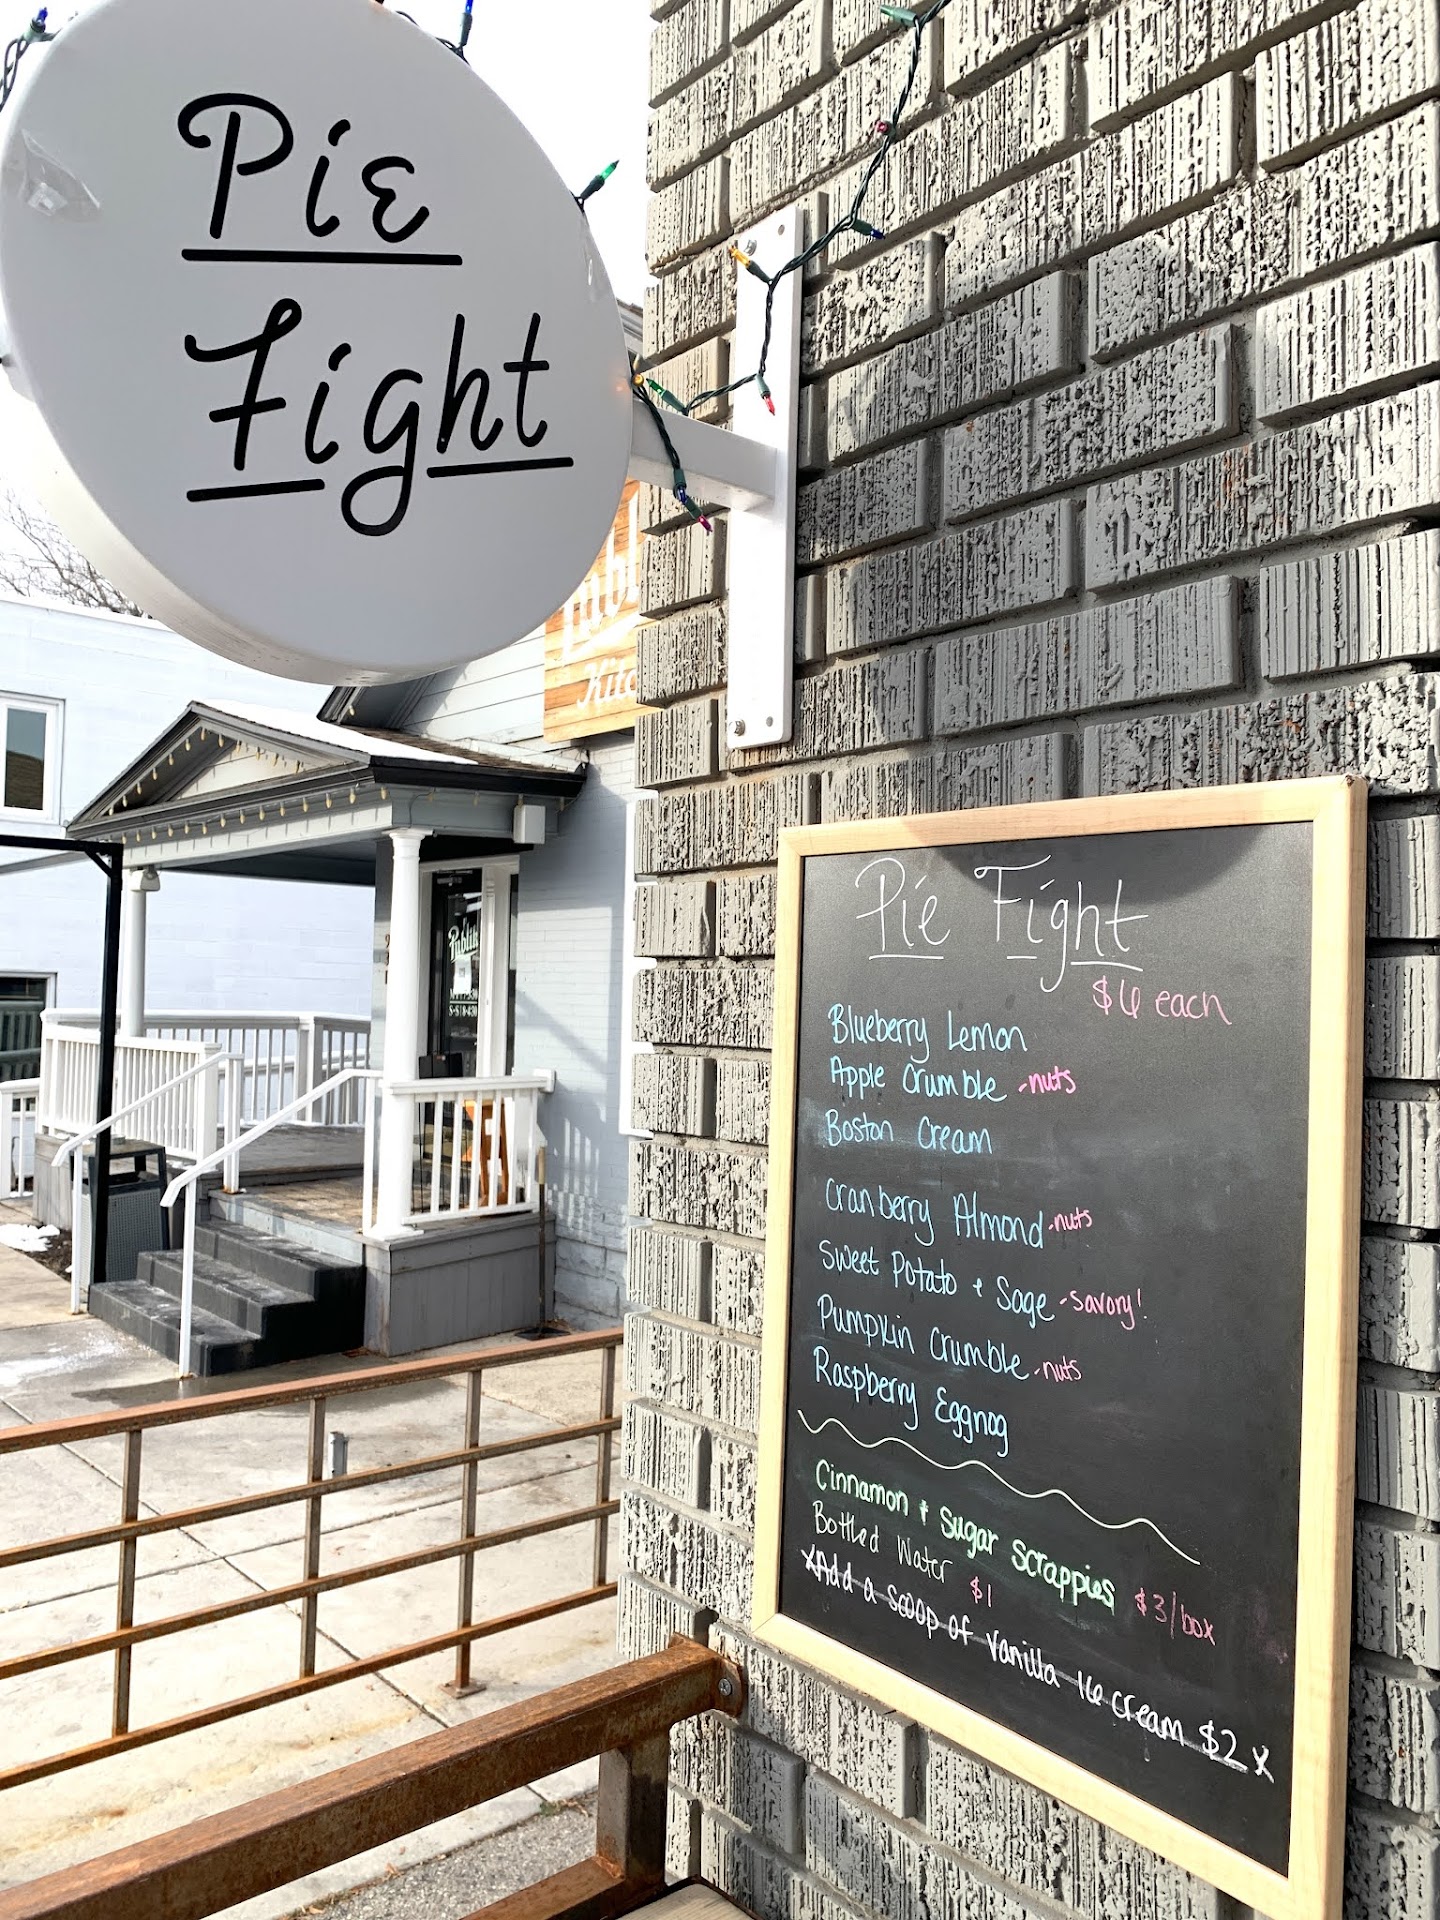 Pie
Fight
Kitc
Publik
Pie Fight
$6 each
Blueberry Lemon
Apple Crumble -nuts
Boston Cream
Cranberry Almond -nuts
Sweet Potato + Sage -savory!
Pumpkin Crumble -nuts
Raspberry Eggnog
Cinnamon + Sugar Scrappies $3/box
Bottled Water $1
*Add a scoop of vanilla ice cream $2*